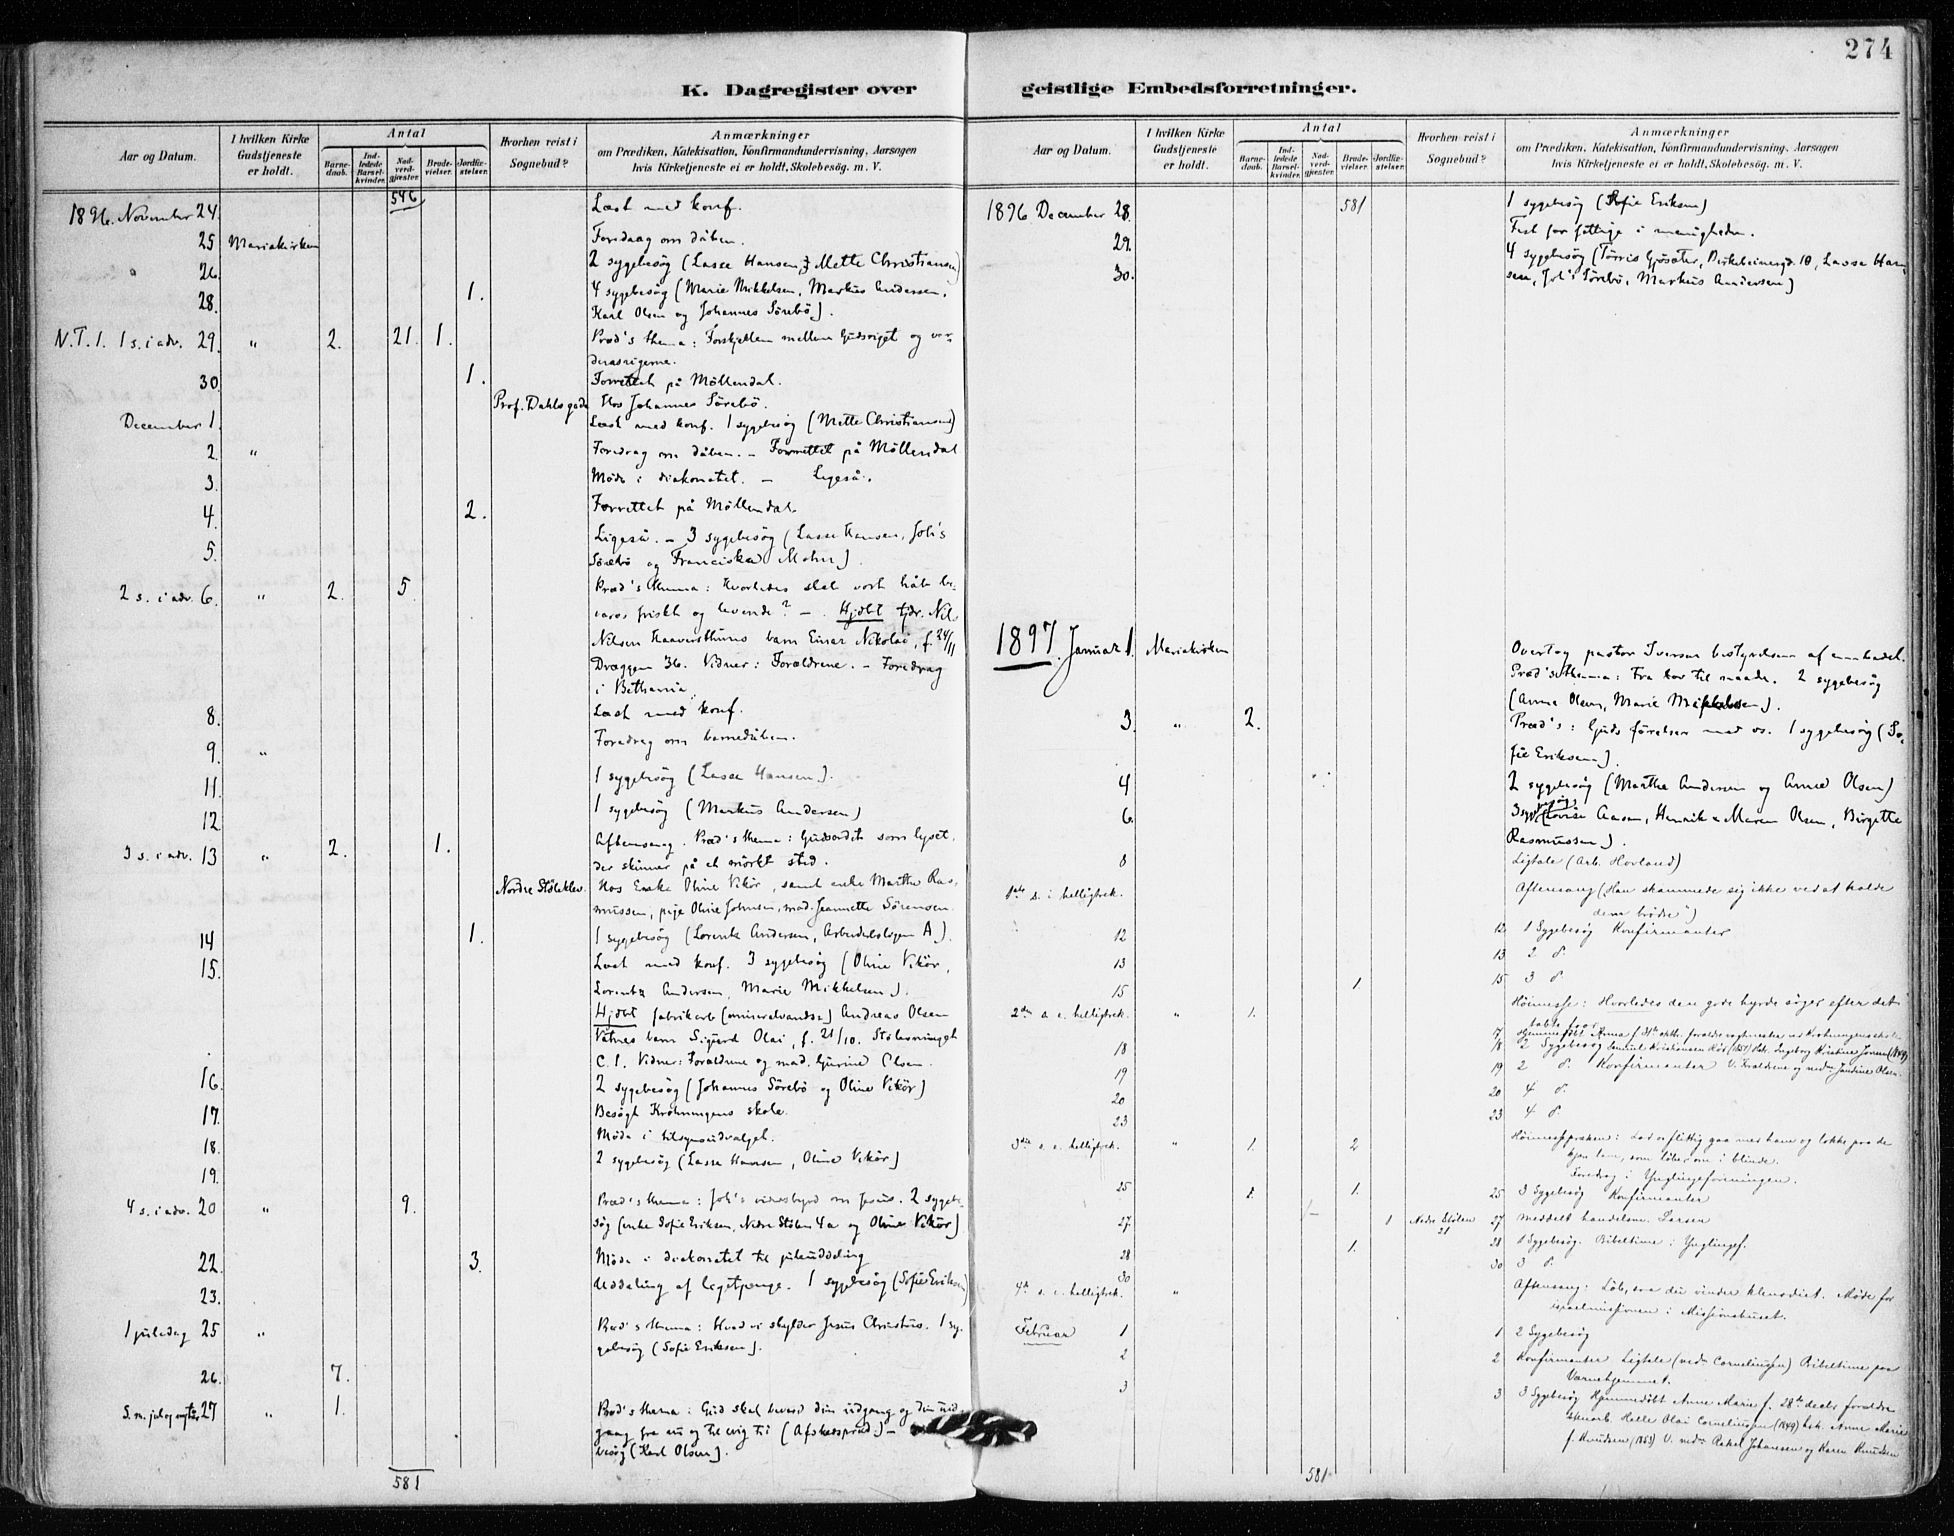 274
K. Dagregister over geistlige Embedsforretninger.
Aar og Datum.
I hvilken Kirke Gudstjeneste er holdt.
Antal
Barnedaab.
Indledede Barselkvinder.
Nadverdgjæster.
Brudevielser.
Jordfæstelser.
Hvorhen reist i Sognebud?
Anmærkninger
om Prædiken, Katekisation, Konfirmandundervisning, Aarsagen
hvis Kirketjeneste ei er holdt, Skolebesøg. m. V.
546
1896. November 24. Læst med konf.
25 Mariakirken Foredrag om dåben.
26. 2 sygebesög (Lasse Hansen, Mette Christiansen)
28. 1. 4 sygebesög (Marie Mikkelsen, Markus Andersen,
Karl Olsen og Johannes Sörebö).
N.T. 1. 1 s. i adv. 29. " 2. 21. 1. Præd's thema: Forskjellen mellem Gudsriget og ver-
densrigerne.
30. 1. Forrettet på Möllendal.
Prof. Dahls gade Hos Johannes Sörebö.
December 1. Læst med konf. 1 sygebesög (Mette Christiansen)
2. " Foredrag om dåben. – Forrettet på Möllendal
3. Möde i diakonatet. – Ligeså.
4. 2. Forrettet på Möllendal.
5. Ligeså. – 3 sygebesög (Lasse Hansen, Joh's
Sörebö og Franciska Mohn).
2 s. i adv. 6. " 2. 5. Præd's thema: Hvorledes skal vort håb be-
vares friskt og levende? – Hjdbt
Nilsen barn Einar Nikolai, f. 24/11
Dræggen 36. Vidner: Forældrene. – Foredrag
i Bethania.
8. Læst med konf.
9. " Foredrag om barnedåben.
11. 1 sygebesög (Lasse Hansen).
12 1 sygebesög (Markus Andersen)
3 s. i adv. 13 " 2. 1. Aftensang. Præd's thema: Gudsordet som lyset,
der skinner på et mörkt sted.
Nordre Stöleklev. Hos Enke Oline Vikör, samt enke Marthe Ras-
mussen, pige Oline Johnsen, mad. Jeannette Sörensen.
14 1. 1 sygebesög (Lorentz Andersen, Arbeiderboligen A).
15. Læst med konf. 3 sygebesög (Oline Vikör,
Lorentz Andersen, Marie Mikkelsen).
Hjdbt fabrikarb (mineralvandsf.) Andreas Olsen
Vatnes barn Sigurd Olai, f. 21/10.
C. 1. Vidner: Forældrene og mad. Gurine Olsen.
16. 2 sygebesög (Johannes Sörebö og Oline Vikör)
17. Besögt Krohnengens skole.
18. Möde i tilsynsudvalget.
19. 2 sygebesög (Lasse Hansen, Oline Vikör)
4 s. i adv. 20 " 9. Præd's thema: Joh's vidnesbyrd om Jesus. 2 sygebe-
sög (enke Sofie Eriksen, Nedre Stölen 4a og Oline Vikör)
22. 3. Möde i diakonatet til juleuddeling
23. Uddeling af legatpenge. 1 sygebesög (Sofie Eriksen)
1 juledag 25 " Præd's thema: Hvad vi skylder Jesus Christus. 1 sy-
gebesög (Sofie Eriksen).
26. 7.
S. m. jul og nytår 27 " 1. Præd's thema: Gud skal bevare din udgang og din ind-
gang fra nu og til evig tid (Afskedspræd) –
besög (Karl Olsen).
581
Aar og Datum.
I hvilken Kirke Gudstjeneste er holdt.
Antal
Barnedaab.
Indledede Barselkvinder.
Nadverdgjæster.
Brudevielser.
Jordfæstelser.
Hvorhen reist i Sognebud?
Anmærkninger
om Prædiken, Katekisation, Konfirmandundervisning, Aarsagen
hvis Kirketjeneste ei er holdt, Skolebesøg. m. V.
1896 December 28. 581 1 sygebesög (Sofie Eriksen)
29. Fest for fattige i menigheden.
30. 4 sygebesög (Törris Gjösæter, Birkebeinergd. 10, Lasse Han-
sen, Joh's Sörebö, Markus Andersen)
1897. Januar 1. Mariakirken Overtog pastor Iversen bestyrelsen af embedet.
Præd's thema: Fra lov til naade. 2 sygebesög
(Anna Olsen, Marie Mikkelsen).
3. " 2. Præd's: Guds förelser med os. 1 sygebesög (So-
fie Eriksen).
4 2 sygebesög (Marthe Andersen og Anne Olsen)
6. 3 syge besög (Lovise Aasen, Henrik u Maren Olsen, Birgitte
Rasmussen).
8 Ligtale (Arb. Hovland)
1ste s. i helligtrek. Aftensang (Han skammede sig ikke ved at kalde
dem brödre")
12 12. 1 Sygebesög Konfirmanter
13 13 2 d°
15 1 15 3 d°
2den s. e. helligtrek. " 1. Höimesse: Hvorledes den gode hyrde söger efter det
tabte faar
17 Hjemmedöbt Anna f.
18 18 2 Sygebesög
19 19 2 d° Konfirmanter V. Forældrene og Jandine Olsen
20 20 4 d°
23 23 4 d°
3die s. e. helligtrek. " 1. 2 Höimessepræken: Lad os flittig gaa med ham og lokke paa de
som löber om i blinde.
Foredrag i Ynglingeforeningen.
25 1. 1. 25 3 Sygebesög Konfirmanter
27. 1 Nedre Stölen 21 27 Meddelt handelsm. Larsen
28 1. 28 1 Sygebesög. Bibeltime i Ynglingef.
30 30 3 d°.
4de s. e. helligtrek. " Aftensang: Löb, saa du vinder klenodiet. Möde for
israelmissionen i Missionshuset.
Februar 1 1 2 Sygebesög
2 2 Konfirmanter Ligtale (Corneliussen) Bibeltime paa
Værnehjemmet.
3 3 3 Sygebesög Hjemmedöbt Anne Marie f. 28de decbr. forældre
Helle Olai Corneliussen (1849) hst. Anne Marie
f. Knudsen (1853) V. Rakel Johansen og Karen Knudsen
581